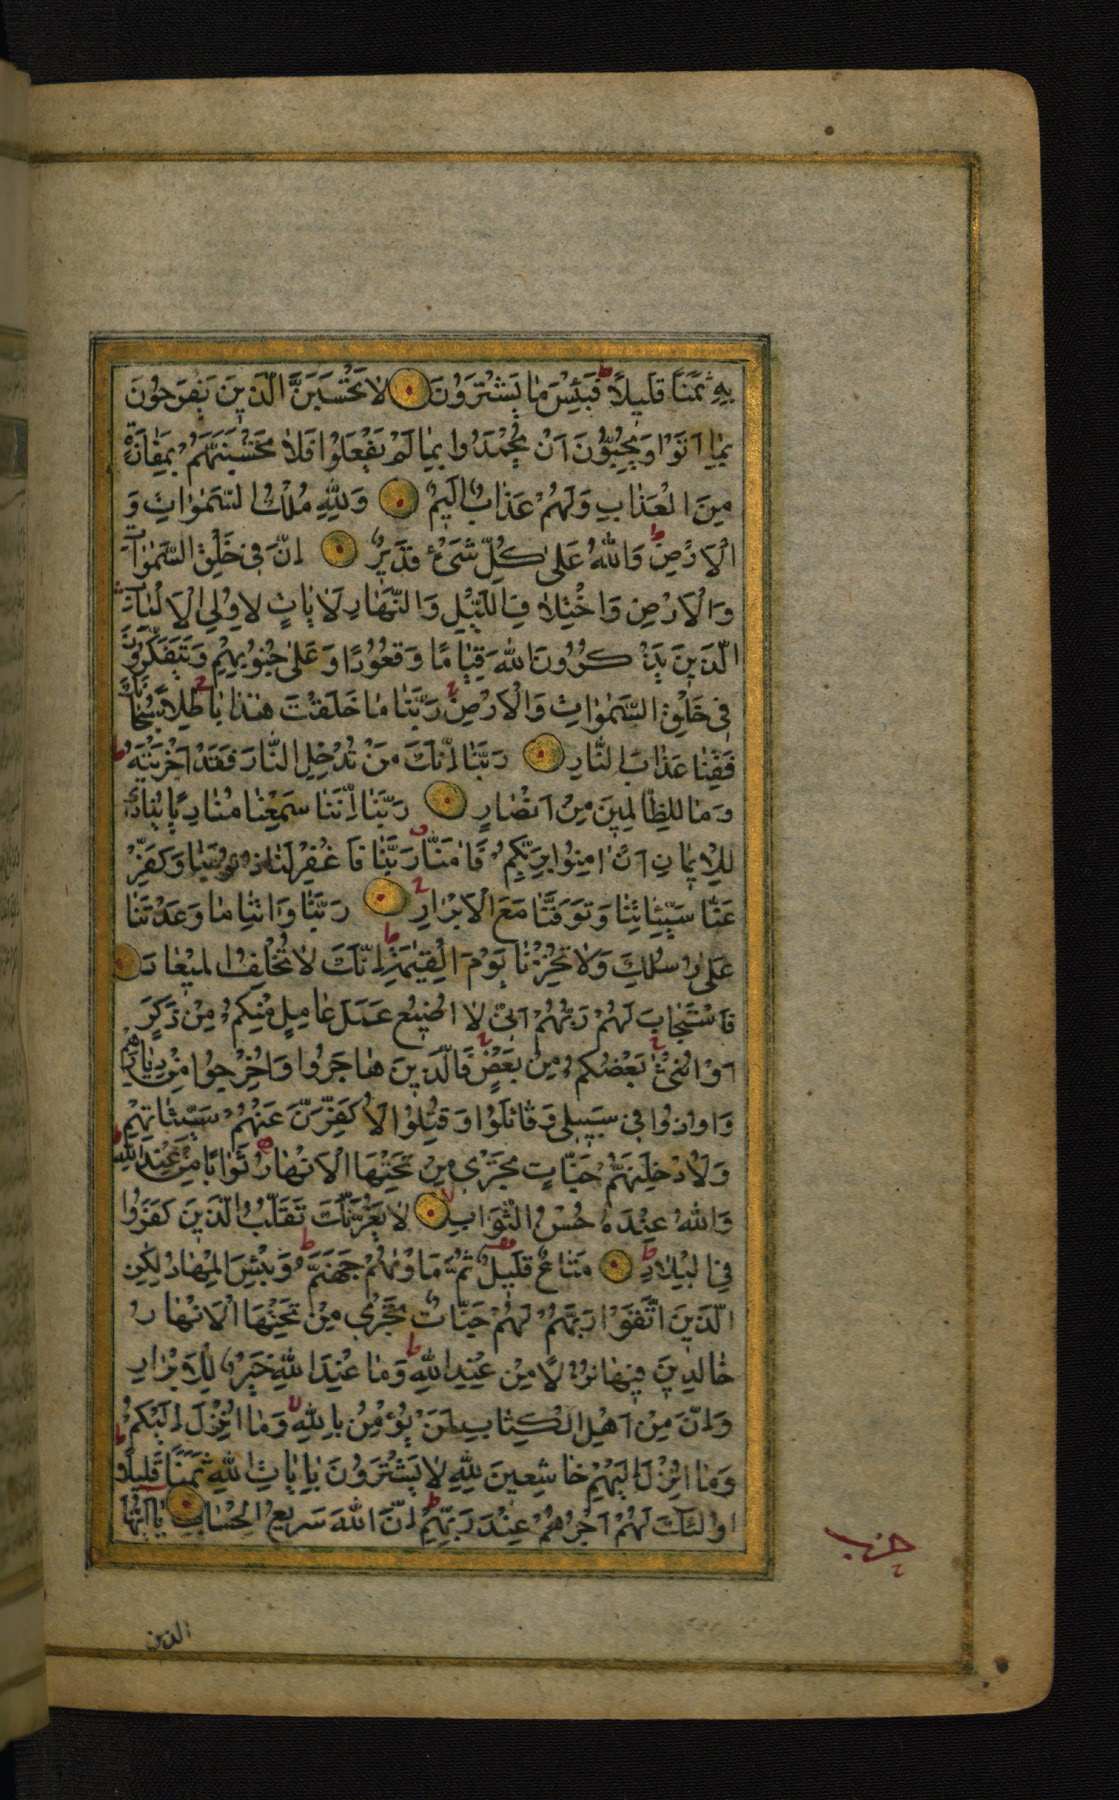 بِهِ ثَمَنًا قَلِيلًا فَبِئْسَ مَا يَشْتَرُونَ لَا تَحْسَبَنَّ الَّذِينَ يَفْرَحُونَ
بِمَا اَتَوْا وَيُحِبُّونَ اَنْ يُحْمَدُوا بِمَا لَمْ يَفْعَلُوا فَلَا تَحْسَبَنَّهُمْ بِمَفَازَةٍ
مِنَ الْعَذَابِ وَلَهُمْ عَذَابٌ اَلِيمٌ وَلِلّٰهِ مُلْكُ السَّمٰوَاتِ وَ
الْاَرْضِ وَاللّٰهُ عَلٰى كُلِّ شَىْءٍ قَدِيرٌ اِنَّ فِى خَلْقِ السَّمٰوَاتِ
وَالْاَرْضِ وَاخْتِلَافِ اللَّيْلِ وَالنَّهَارِ لَاٰيَاتٍ لِاُولِى الْاَلْبَابِ
الَّذِينَ يَذْكُرُونَ اللّٰهَ قِيَامًا وَقُعُودًا وَعَلٰى جُنُوبِهِمْ وَيَتَفَكَّرُونَ
فِى خَلْقِ السَّمٰوَاتِ وَالْاَرْضِ رَبَّنَا مَا خَلَقْتَ هٰذَا بَاطِلًا سُبْحَانَكَ
فَقِنَا عَذَابَ النَّارِ رَبَّنَا اِنَّكَ مَنْ تُدْخِلِ النَّارَ فَقَدْ اَخْزَيْتَهُ
وَمَا لِلظَّالِمِينَ مِنْ اَنْصَارٍ رَبَّنَا اِنَّنَا سَمِعْنَا مُنَادِيًا يُنَادِى
لِلْاِيمَانِ اَنْ اٰمِنُوا بِرَبِّكُمْ فَاٰمَنَّا رَبَّنَا فَاغْفِرْ لَنَا ذُنُوبَنَا وَكَفِّرْ
عَنَّا سَيِّئَاتِنَا وَتَوَفَّنَا مَعَ الْاَبْرَارِ رَبَّنَا وَاٰتِنَا مَا وَعَدْتَنَا
عَلٰى رُسُلِكَ وَلَا تُخْزِنَا يَوْمَ الْقِيٰمَةِ اِنَّكَ لَا تُخْلِفُ الْمِيعَادَ
فَاسْتَجَابَ لَهُمْ رَبُّهُمْ اَنِّى لَا اُضِيعُ عَمَلَ عَامِلٍ مِنْكُمْ مِنْ ذَكَرٍ
اَوْ اُنْثٰى بَعْضُكُمْ مِنْ بَعْضٍ فَالَّذِينَ هَاجَرُوا وَاُخْرِجُوا مِنْ دِيَارِهِمْ
وَاُوذُوا فِى سَبِيلِى وَقَاتَلُوا وَقُتِلُوا لَاُكَفِّرَنَّ عَنْهُمْ سَيِّئَاتِهِمْ
وَلَاُدْخِلَنَّهُمْ جَنَّاتٍ تَجْرِى مِنْ تَحْتِهَا الْاَنْهَارُ ثَوَابًا مِنْ عِنْدِ اللّٰهِ
وَاللّٰهُ عِنْدَهُ حُسْنُ الثَّوَابِ لَا يَغُرَّنَّكَ تَقَلُّبُ الَّذِينَ كَفَرُوا
فِى الْبِلَادِ مَتَاعٌ قَلِيلٌ ثُمَّ مَاْوٰيهُمْ جَهَنَّمُ وَبِئْسَ الْمِهَادُ لٰكِنِ
الَّذِينَ اتَّقَوْا رَبَّهُمْ لَهُمْ جَنَّاتٌ تَجْرِى مِنْ تَحْتِهَا الْاَنْهَارُ
خَالِدِينَ فِيهَا نُزُلًا مِنْ عِنْدِ اللّٰهِ وَمَا عِنْدَ اللّٰهِ خَيْرٌ لِلْاَبْرَارِ
وَاِنَّ مِنْ اَهْلِ الْكِتَابِ لَمَنْ يُؤْمِنُ بِاللّٰهِ وَمَا اُنْزِلَ اِلَيْكُمْ
وَمَا اُنْزِلَ اِلَيْهِمْ خَاشِعِينَ لِلّٰهِ لَا يَشْتَرُونَ بِاٰيَاتِ اللّٰهِ ثَمَنًا قَلِيلًا
اُولٰئِكَ لَهُمْ اَجْرُهُمْ عِنْدَ رَبِّهِمْ اِنَّ اللّٰهَ سَرِيعُ الْحِسَابِ يَا اَيُّهَا
حزب
الذين